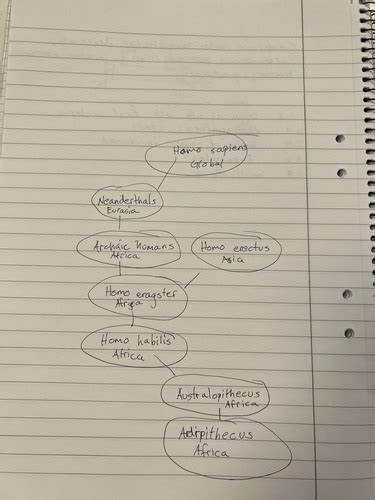 Homo sapiens
Global
Neanderthals
Eurasia
Archaic humans
Africa
Homo erectus
Asia
Homo eragster
Africa
Homo habilis
Africa
Australopithecus
Africa
Adipithecus
Africa